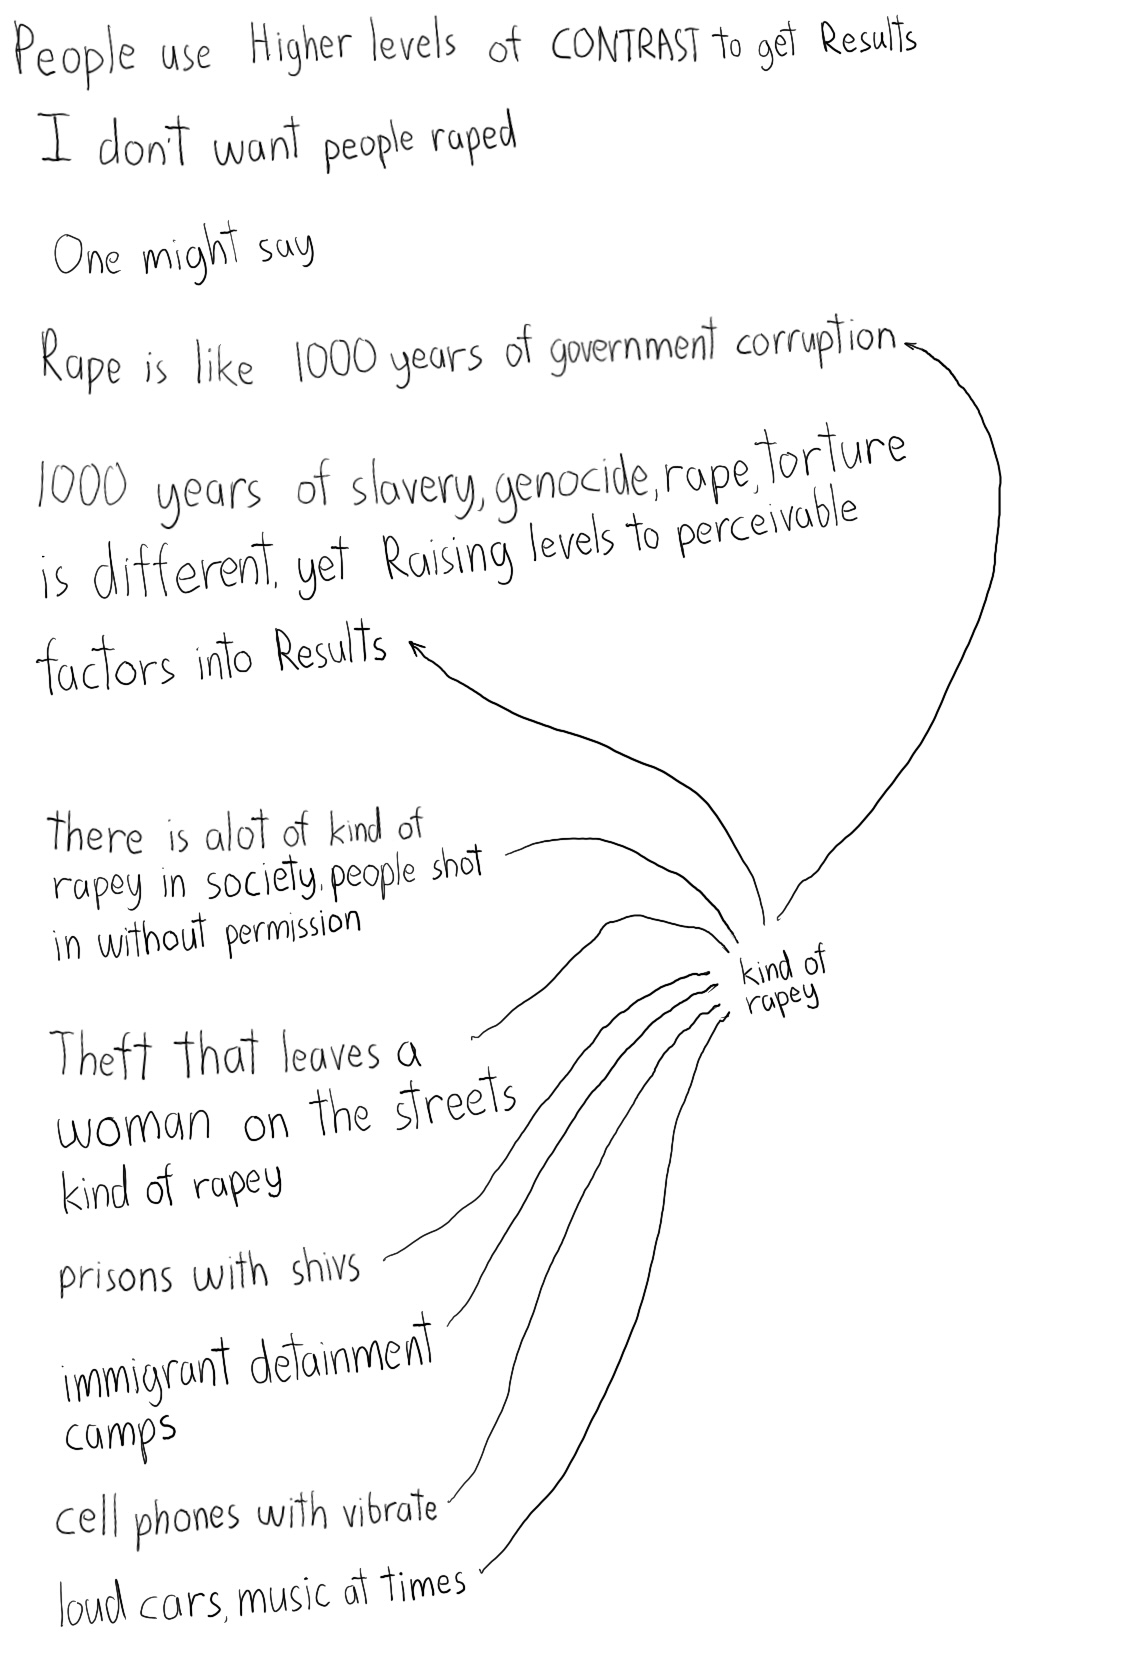 People use Higher levels of CONTRAST to get Results
I don't want people raped
One might say
Rape is like 1000 years of government corruption
1000 years of slavery, genocide, rape, torture
is different, yet Raising levels to perceivable
factors into Results
there is alot of kind of
rapey in society, people shot
in without permission
kind of
rapey
Theft that leaves a
woman on the streets
kind of rapey
prisons with shivs
immigrant detainment
camps
cell phones with vibrate
loud cars, music at times